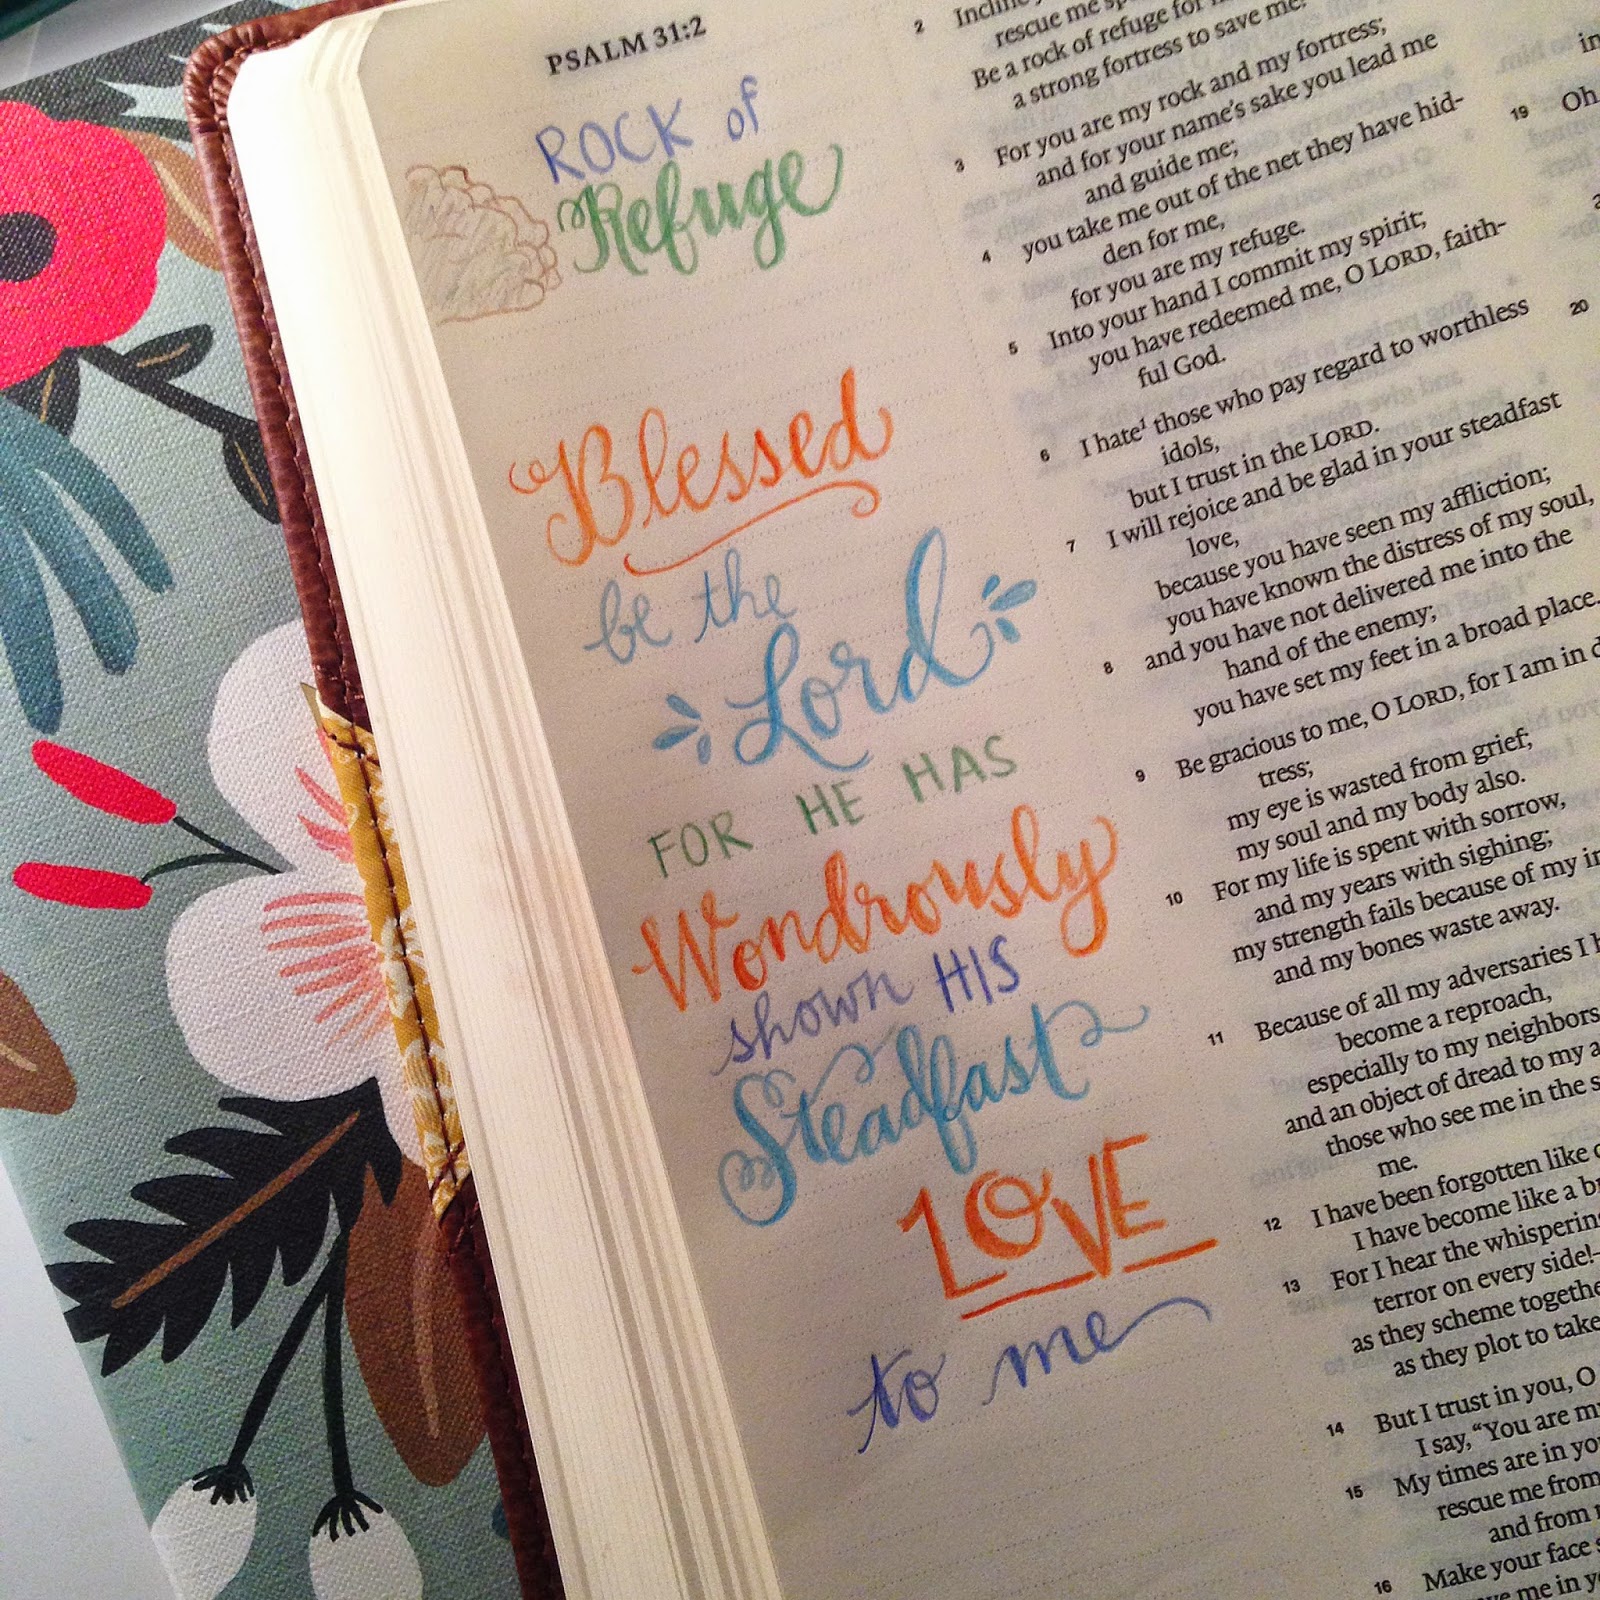 PSALM 31:2
ROCK of
Refuge
Blessed
be the
Lord
FOR HE HAS
Wondrously
shown HIS
Steadfast
LOVE
to me
2 Incline
rescue me
Be a rock of refuge for
a strong fortress to save me!
3 For you are my rock and my fortress;
and for your name's sake you lead me
and guide me;
4 you take me out of the net they have hid-
den for me,
for you are my refuge.
5 Into your hand I commit my spirit;
you have redeemed me, O LORD, faith-
ful God.
6 I hate¹ those who pay regard to worthless
idols,
but I trust in the LORD.
7 I will rejoice and be glad in your steadfast
love,
because you have seen my affliction;
you have known the distress of my soul,
8 and you have not delivered me into the
hand of the enemy;
you have set my feet in a broad place.
9 Be gracious to me, O LORD, for I am in
tress;
my eye is wasted from grief;
my soul and my body also.
10 For my life is spent with sorrow,
and my years with sighing;
my strength fails because of my
and my bones waste away.
11 Because of all my adversaries I
become a reproach,
especially to my neighbors
and an object of dread to my
those who see me in the
me.
12 I have been forgotten like
I have become like a
13 For I hear the whispering
terror on every side!—
as they scheme together
as they plot to take
14 But I trust in you, O
I say, “You are my
15 My times are in
rescue me from
and from
16 Make your face
me in
19 Oh
20